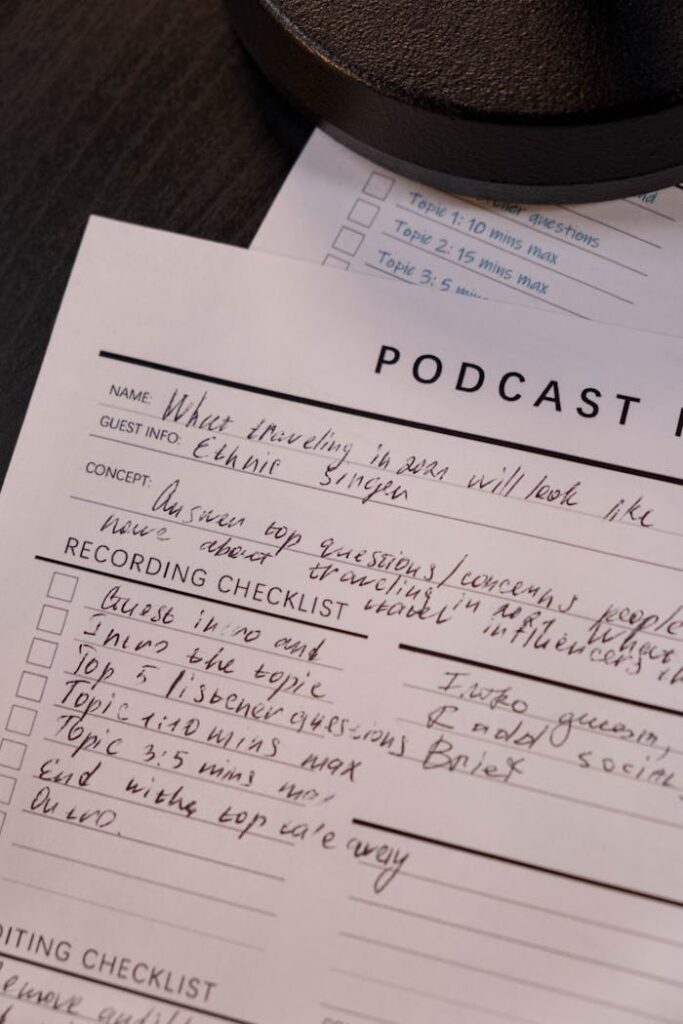 questions
Topic 1: 10 mins max
Topic 2: 15 mins max
Topic 3: 5
PODCAST
NAME: What traveling in 2021 will look like
GUEST INFO: Ethnic Singer
CONCEPT: Answer top questions/concerns people
have about traveling in 2021 What
travel influencers
RECORDING CHECKLIST
Guest intro and
Intro the topic
Top 5 listener questions
Topic 1:10 mins max
Topic 3:5 mins
End with top
Outro.
& add social
Brief
EDITING CHECKLIST